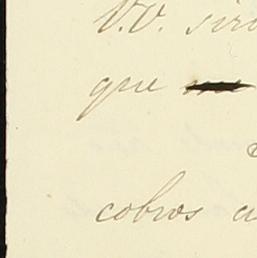 V.V. sir
que
cobros a